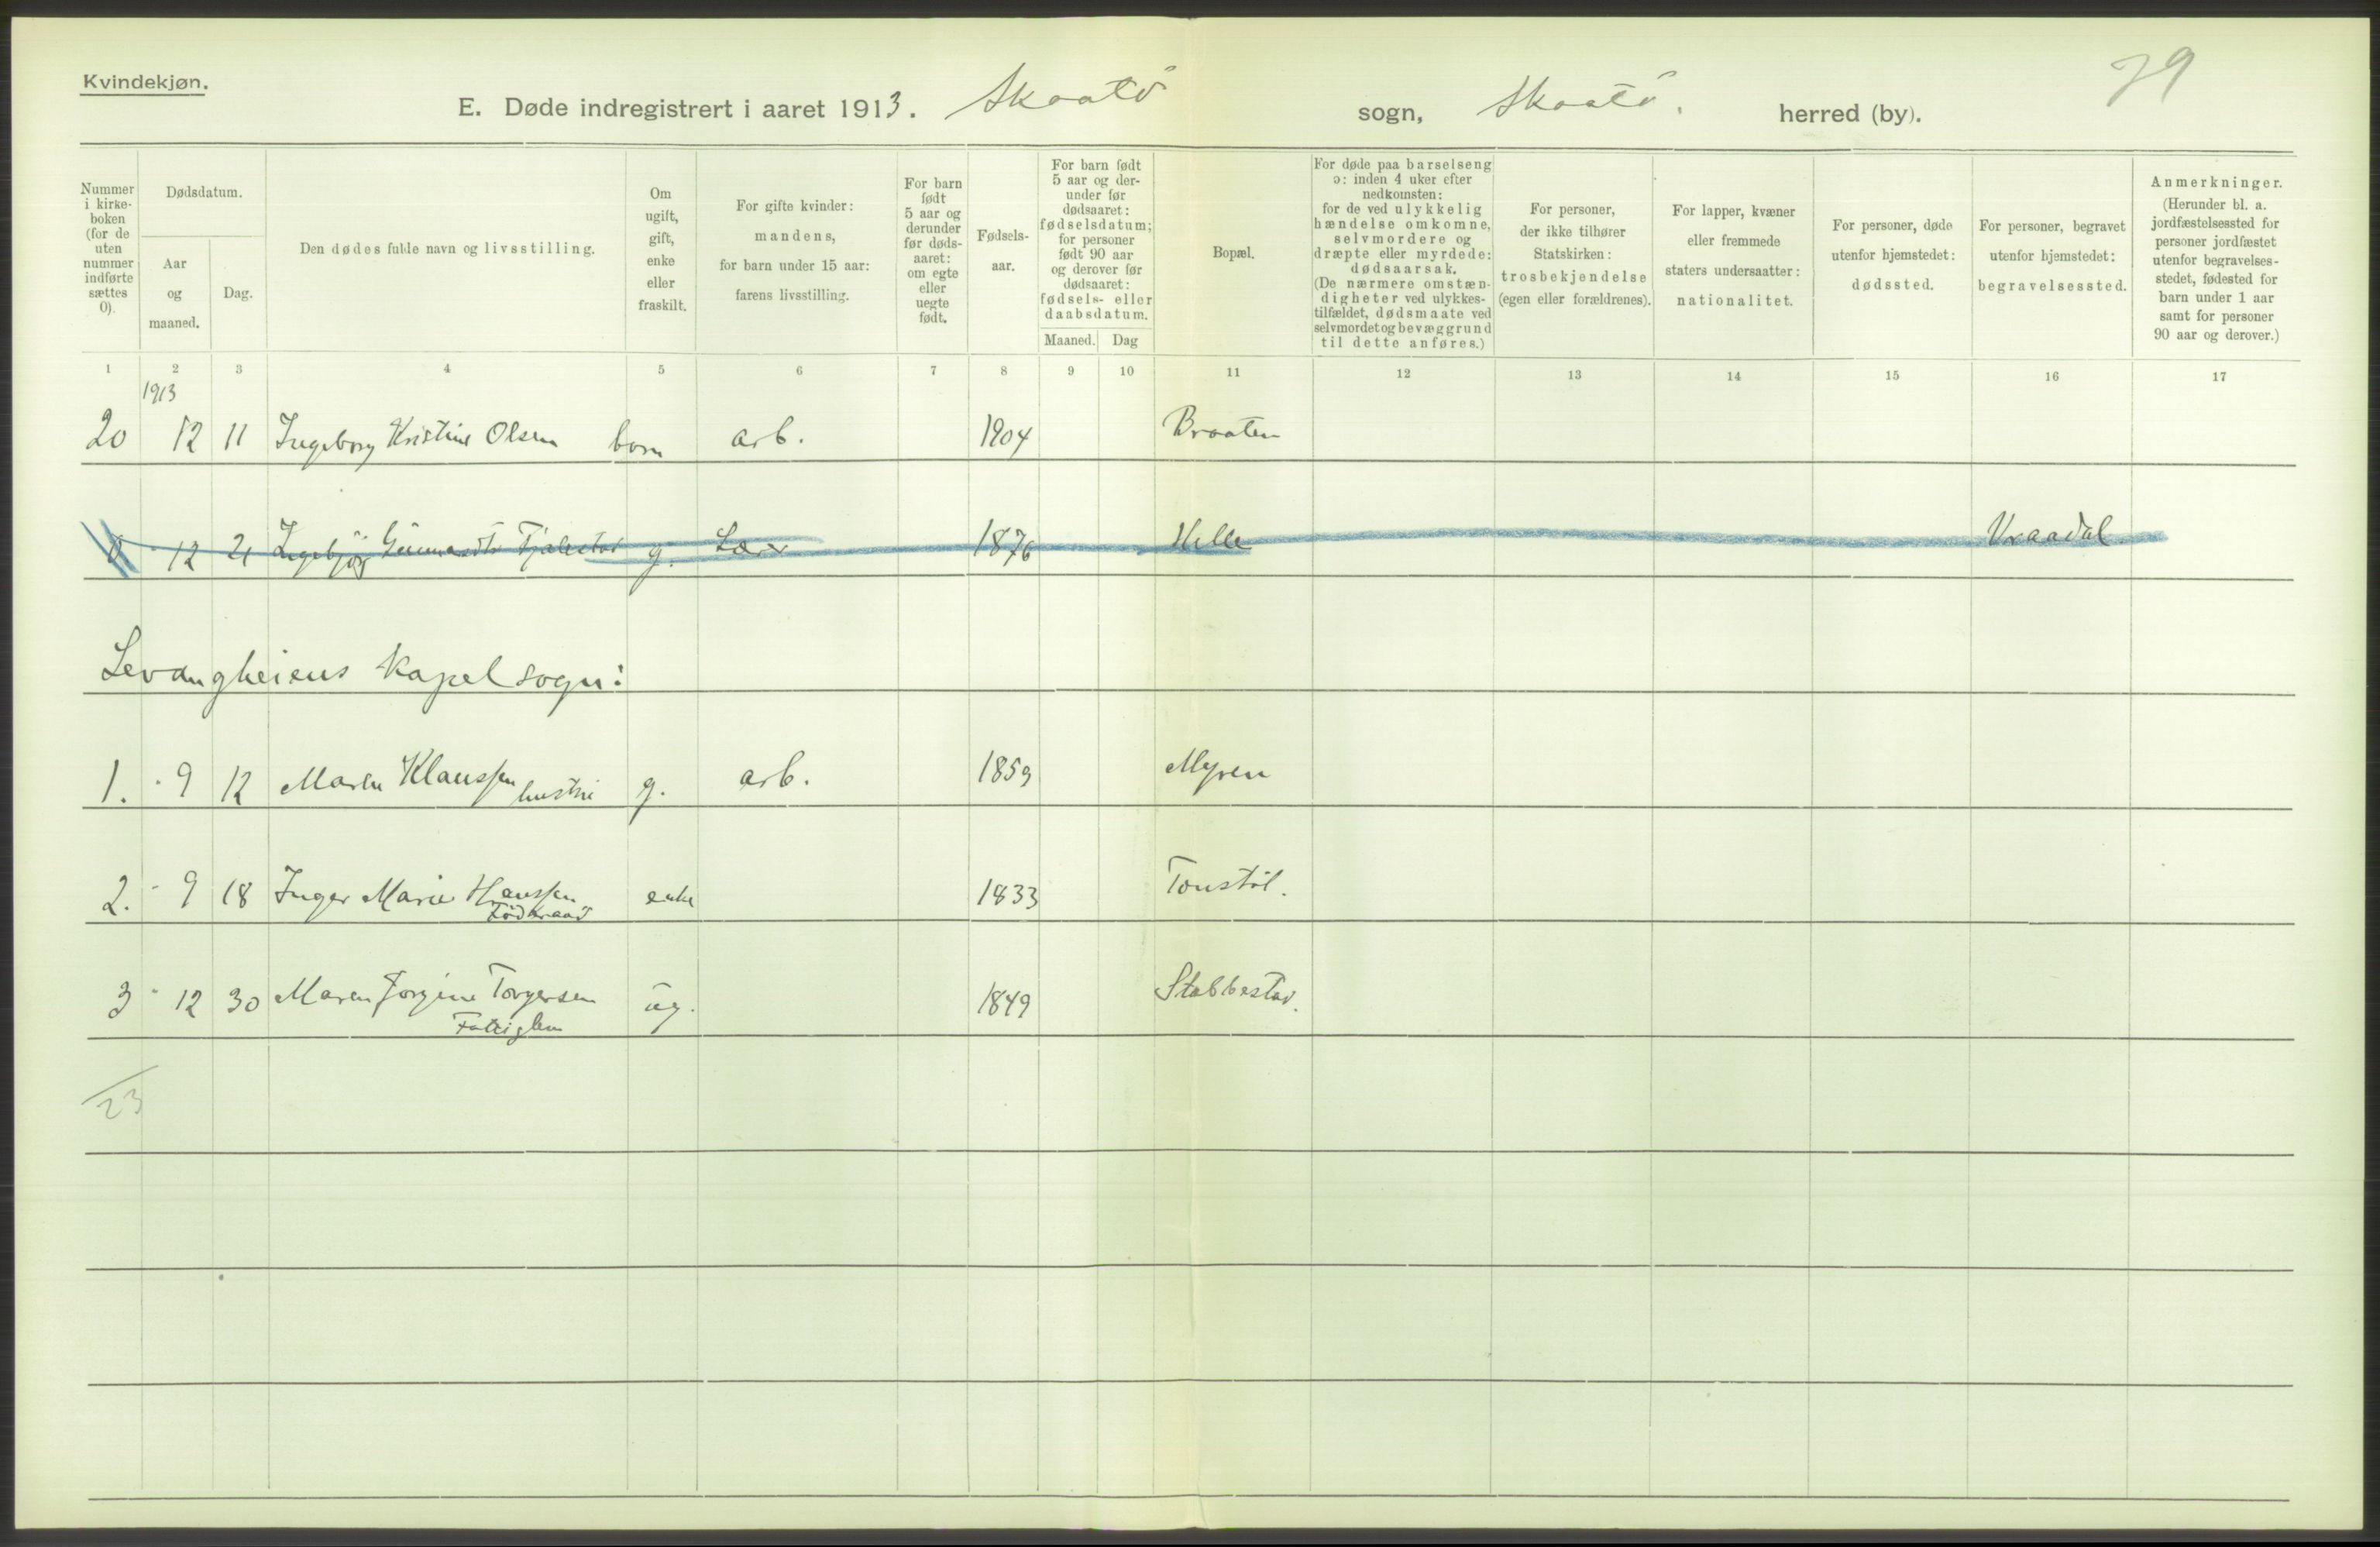 Kvindekjøn.
79
E. Døde indregistrert i aaret 1913. Skaatö sogn, Skaatö. herred (by).
Nummer i kirke-boken (for de uten nummer indførte sættes 0).
Dødsdatum.
Aar og maaned.
Dag.
Den dødes fulde navn og livsstilling.
Om ugift, gift, enke eller fraskilt.
For gifte kvinder: mandens, for barn under 15 aar: farens livsstilling.
For barn født 5 aar og derunder før døds-aaret: om egte eller uegte født.
Fødsels-aar.
For barn født 5 aar og der-under før dødsaaret: fødselsdatum; for personer født 90 aar og derover før dødsaaret: fødsels- eller daabsdatum.
Maaned. Dag
Bopæl.
For døde paa barselseng ɔ: inden 4 uker efter nedkomsten: for de ved ulykkelig hændelse omkomne, selvmordere og dræpte eller myrdede: dødsaarsak. (De nærmere omstæn-digheter ved ulykkes-tilfældet, dødsmaate ved selvmordet og bevæggrund til dette anføres.)
For personer, der ikke tilhører Statskirken: trosbekjendelse (egen eller forældrenes).
For lapper, kvæner eller fremmede staters undersaatter: nationalitet.
For personer, døde utenfor hjemstedet: dødssted.
For personer, begravet utenfor hjemstedet: begravelsessted.
Anmerkninger. (Herunder bl. a. jordfæstelsessted for personer jordfæstet utenfor begravelses-stedet, fødested for barn under 1 aar samt for personer 90 aar og derover.)
1 2 3 4 5 6 7 8 9 10 11 12 13 14 15 16 17
1913
20 12 11 Ingeborg Kristine Olsen barn arb. 1904 Braaten
0 - 12 21 Ingebjör g. Lærer 1876 Helle Vraadal
Levangheiens Kapelsogn:
1. - 9 12 Maren Klaussen hustru g. arb. 1859 Myren
2. - 9 18 Inger Marie Hanssen enke 1833 Tonstöl.
Föderaad
3 - 12 30 Maren Jorgine Torgersen ug. 1849 Stabbestad.
Fattiglem
23